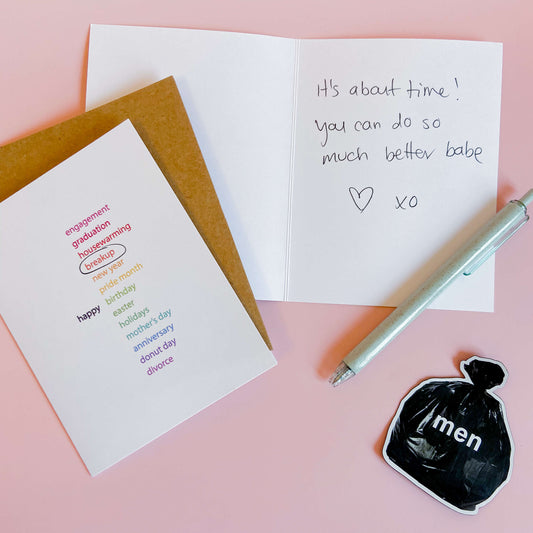 It's about time!
You can do so
much better babe
♡ xo
engagement
graduation
housewarming
breakup
new year
pride month
happy birthday
easter
holidays
mother's day
anniversary
donut day
divorce
men